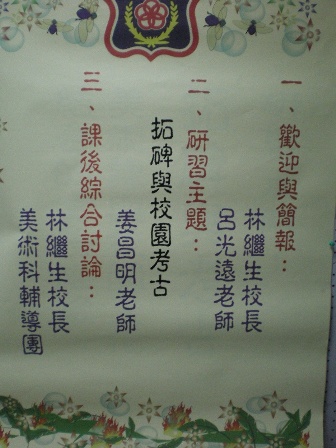 一、歡迎與簡報：
林繼生校長
呂光遠老師
二、研習主題：
拓碑與校園考古
姜昌明老師
三、課後綜合討論：
林繼生校長
美術科輔導團